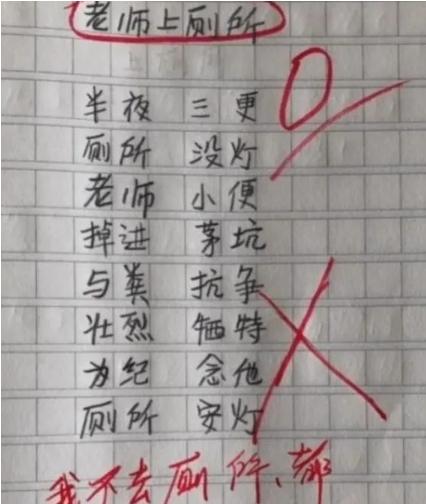 老师上厕所
0
半夜三更
厕所没灯
老师小便
掉进茅坑
与粪抗争
壮烈牺特
为纪念他
厕所安灯
我不去厕所、都